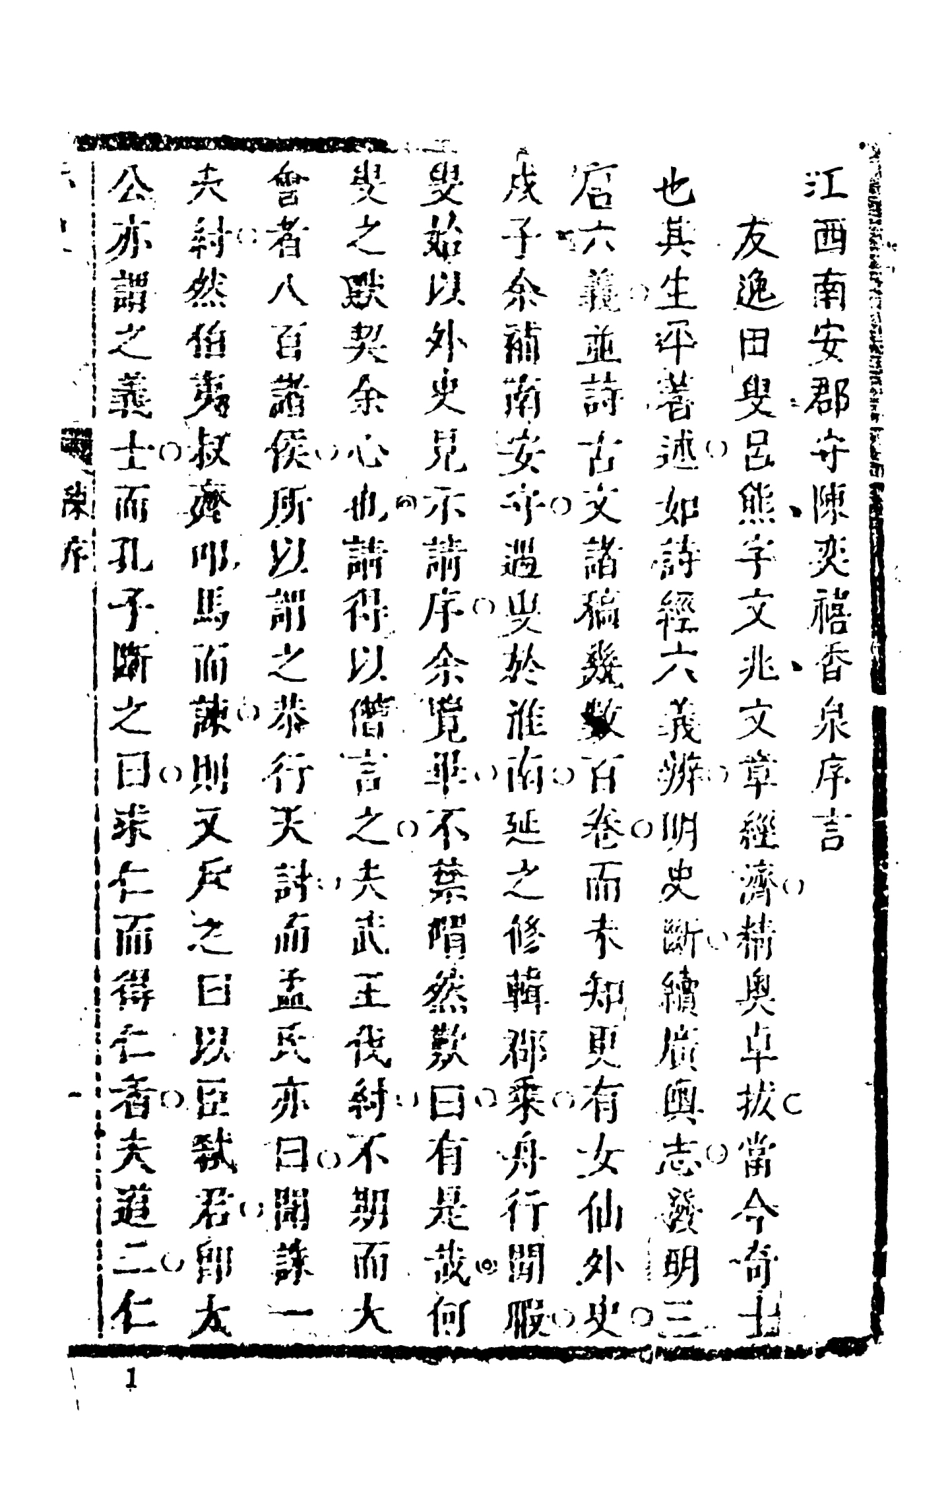 江西南安郡守陳奕禧香泉序言
友逸田叟呂熊字文兆文章經濟精奧卓拔當今奇士
也其生平著述如詩經六義辨明史斷續廣輿志發明三
六義並詩古文諸稿幾數百卷而未知更有女仙外史
戍子余補南安守過叟於淮南延之修輯郡乘舟行閒暇
叟始以外史見示請序余覽畢不葉喟然歎曰有是哉何
叟之默契余心也請得以僭言之夫武王伐紂不期而大
會者八百諸侯所以謂之恭行天討而孟氏亦曰聞誅一
夫紂然伯夷叔齊叩馬而諫則又斥之曰以臣弒君卽太
公亦謂之義士而孔子斷之曰求仁而得仁者夫道二仁
陳序
1